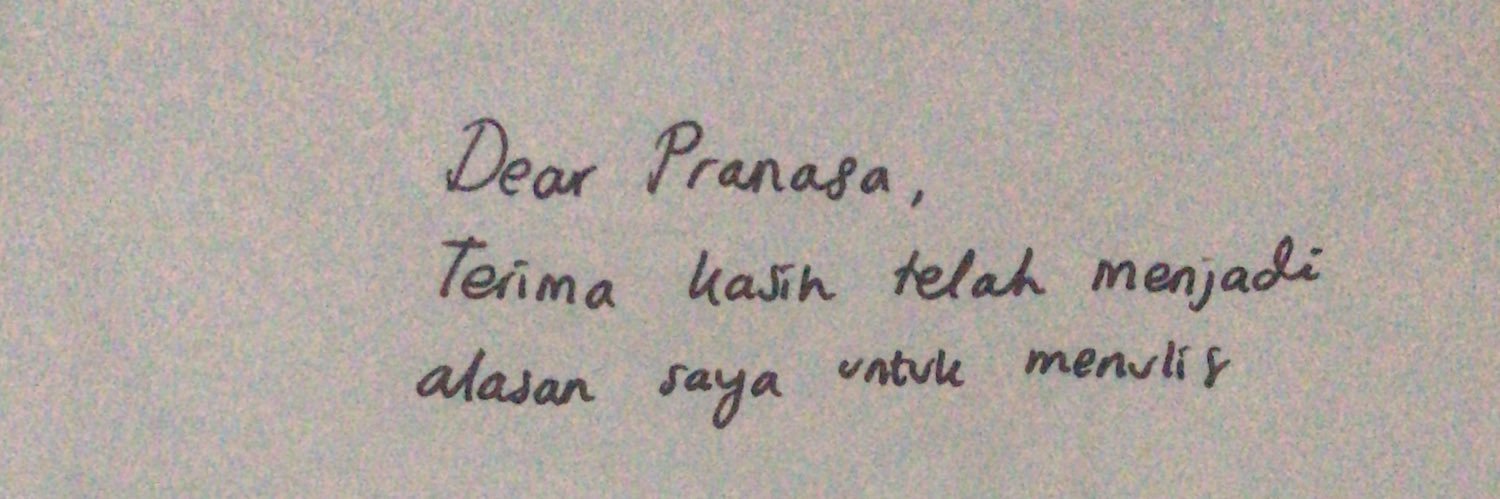 Dear Pranasa,
Terima kasih telah menjadi
alasan saya untuk menulis